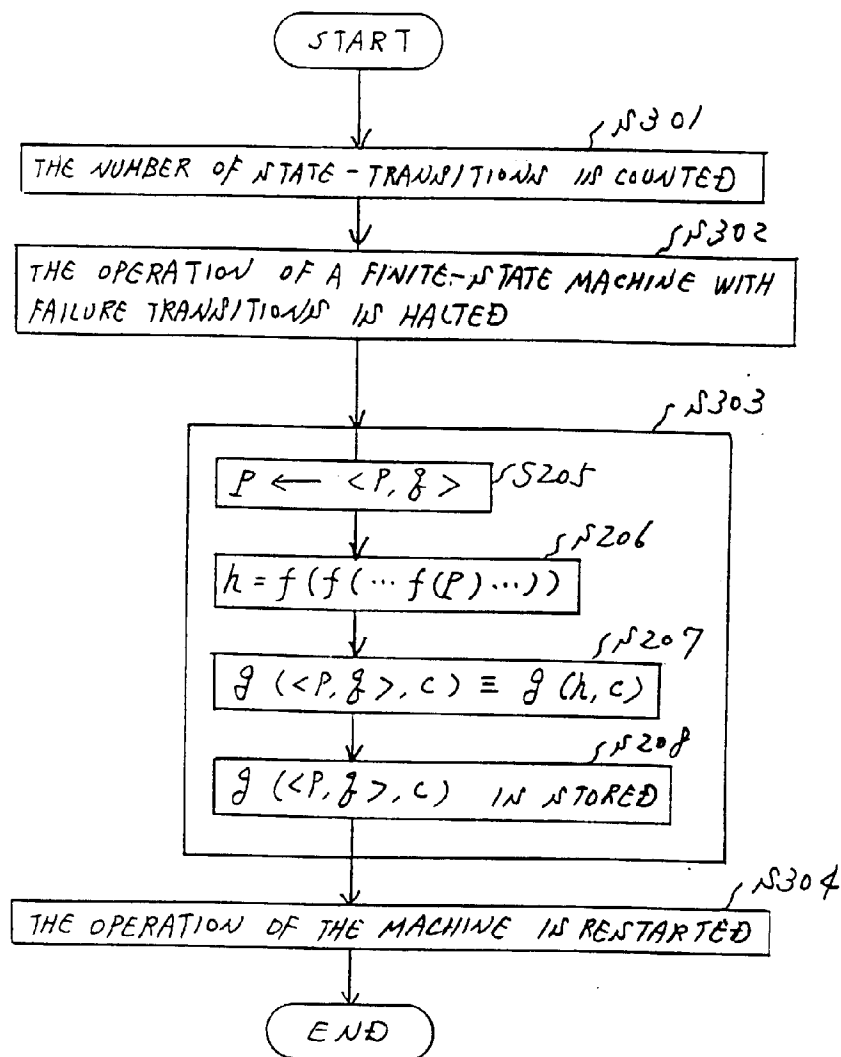 START
S301
THE NUMBER OF STATE-TRANSITIONS IS COUNTED
S302
THE OPERATION OF A FINITE-STATE MACHINE WITH
FAILURE TRANSITIONS IS HALTED
S303
P ← <P, q> S205
S206
h = f(f(… f(P) …))
S207
g (<P, q>, c) ≡ g (h, c)
S208
g (<P, q>, c) IS STORED
S304
THE OPERATION OF THE MACHINE IS RESTARTED
END